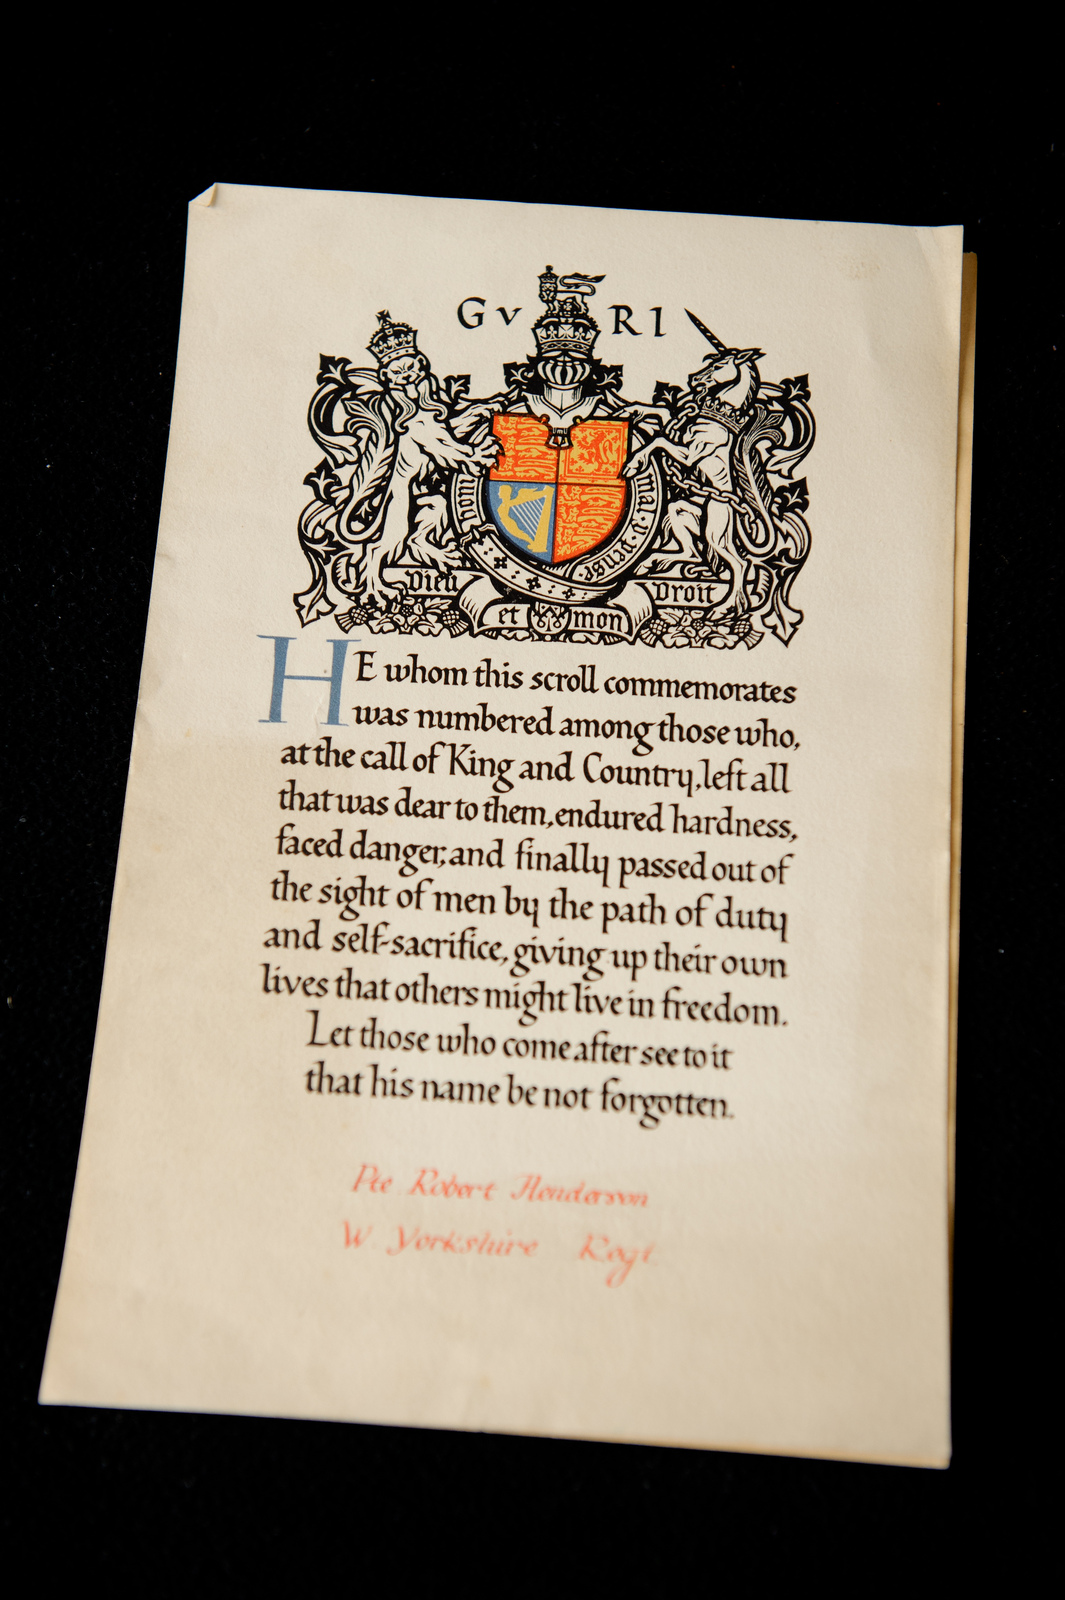 GV RI
hom mal·y·pense
Dieu Droit
et mon
HE whom this scroll commemorates
was numbered among those who,
at the call of King and Country, left all
that was dear to them, endured hardness,
faced danger, and finally passed out of
the sight of men by the path of duty
and self-sacrifice, giving up their own
lives that others might live in freedom.
Let those who come after see to it
that his name be not forgotten.
Pte Robert Henderson
W. Yorkshire Regt.